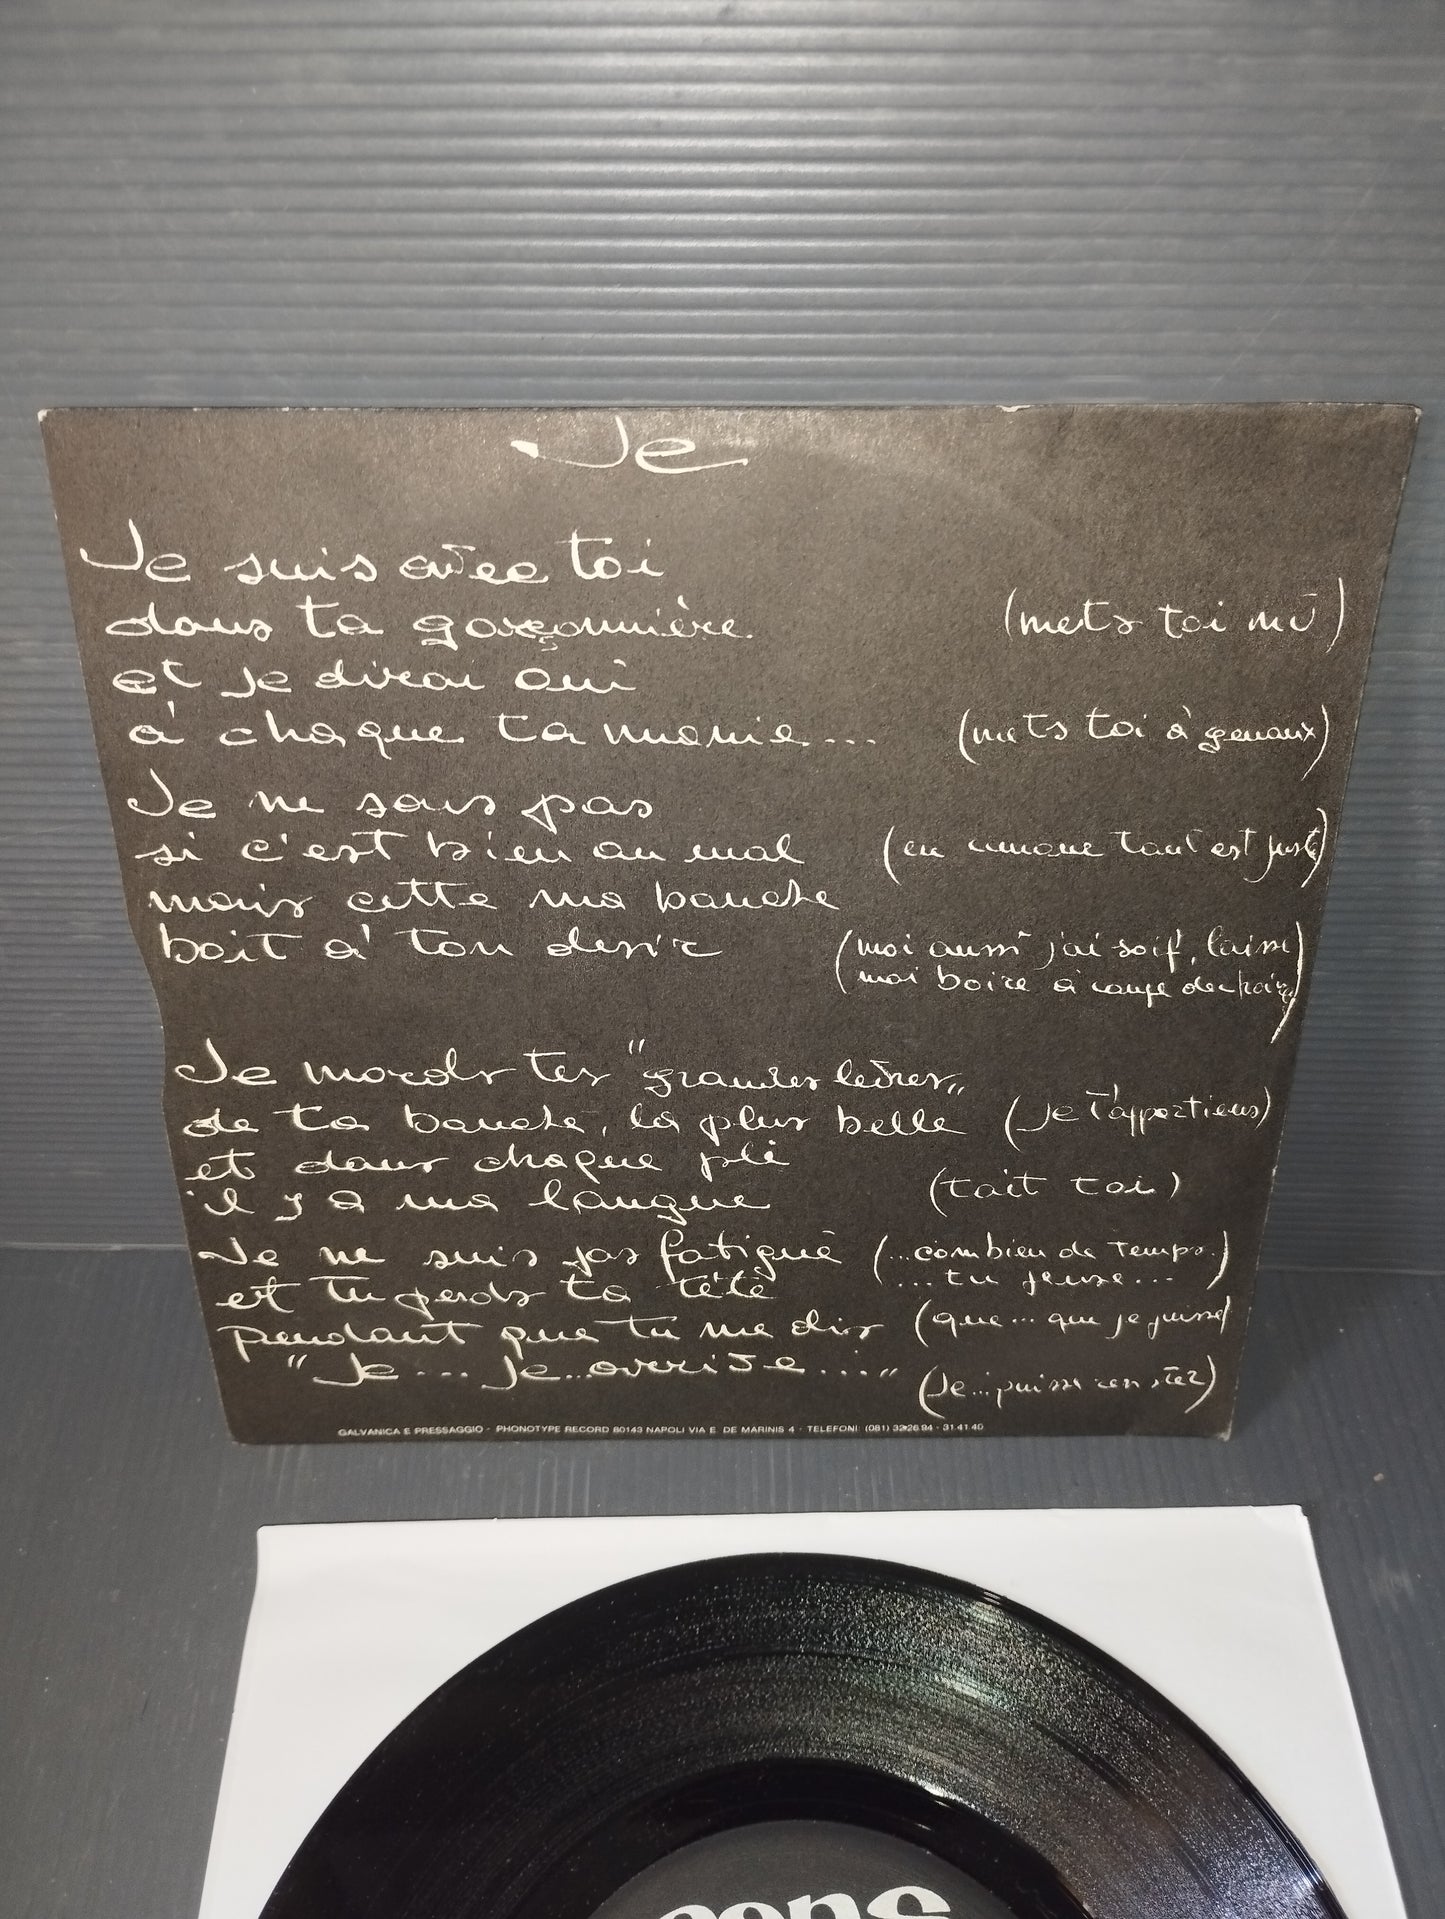 Je
Je suis avec toi
dans ta garçonnière (mets toi nu)
et je dirai oui
à chaque ta manie... (mets toi à genoux)
Je ne sais pas
si c'est bien ou mal (en amour tout est juste)
mais cette ma bouche
boit à ton desir (moi aussi j'ai soif, laisse
moi boire à
Je mords tes "grandes levres"
de ta bouche, la plus belle (je t'appartiens)
et dans chaque pli
il y a ma langue (tait toi)
Je ne suis pas fatigué (...combien de temps.
et tu perds ta tête ...tu penses...)
pendant que tu me dis (que... que je puisse)
"Je... Je...arrive..." (Je...puisse
GALVANICA E PRESSAGGIO - PHONOTYPE RECORD 80143 NAPOLI VIA E. DE MARINIS 4 - TELEFONI (081) 32.26.94 - 31.41.40